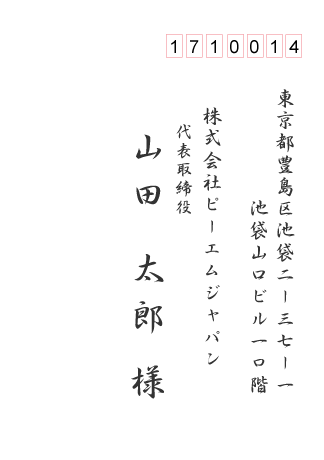 1710014
東京都豊島区池袋二ー三七ー一
池袋山口ビル一〇階
株式会社ピーエムジャパン
代表取締役
山田 太郎 様